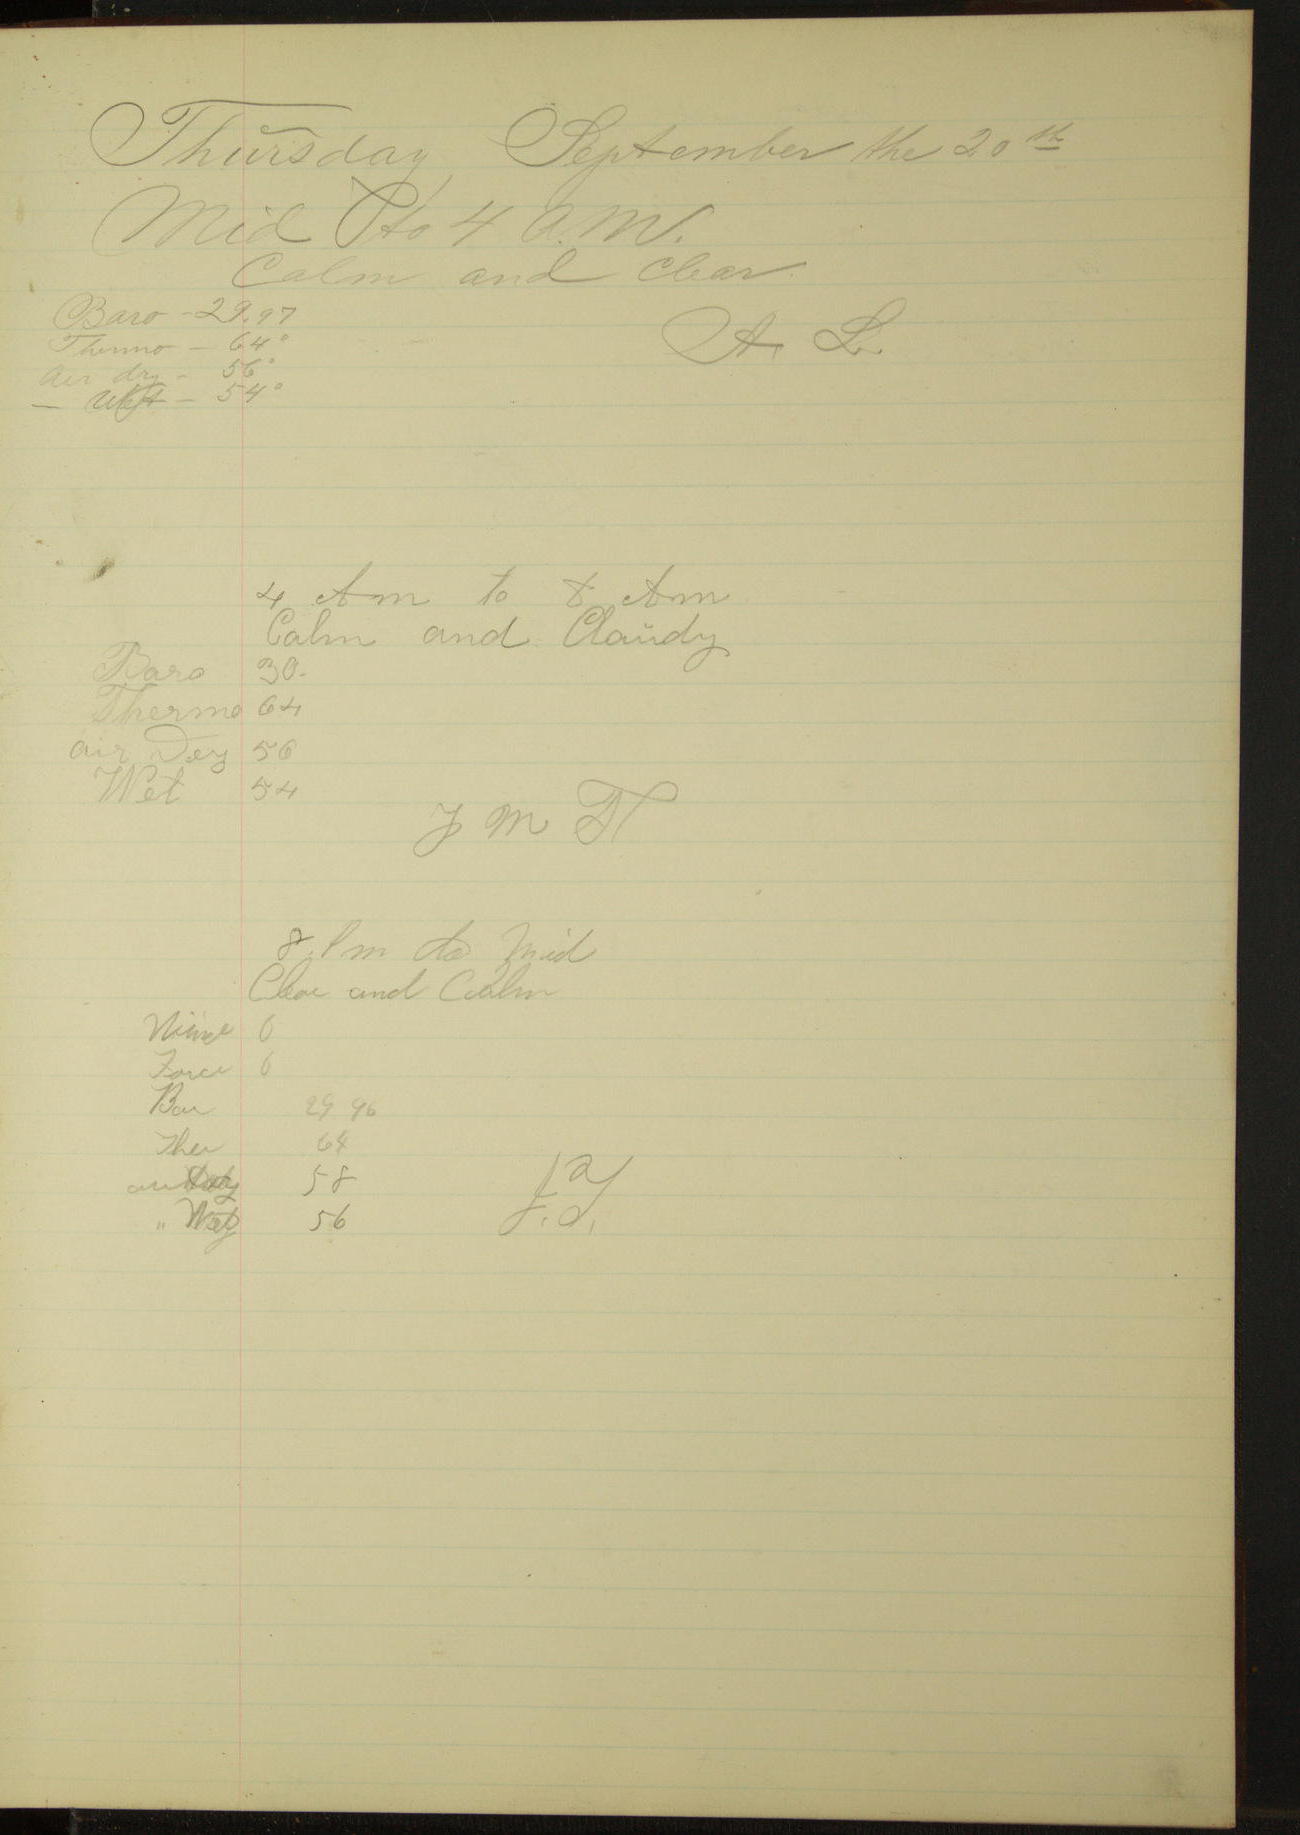 Thursday September the 20th
Mid to 4 A.M.
Calm and Clear.
Baro - 29.97
Thermo - 64°
A. L.
Air dry - 56°
— Wet - 54°
4 Am to 8 Am
Calm and Cloudy
Baro 30.
Thermo 64
air Dry 56
Wet 54
J M T
8. Pm to Mid
Clear and Calm
0
Force 0
Bar 29 96
Ther 64
air Dry 58
" Wet 56